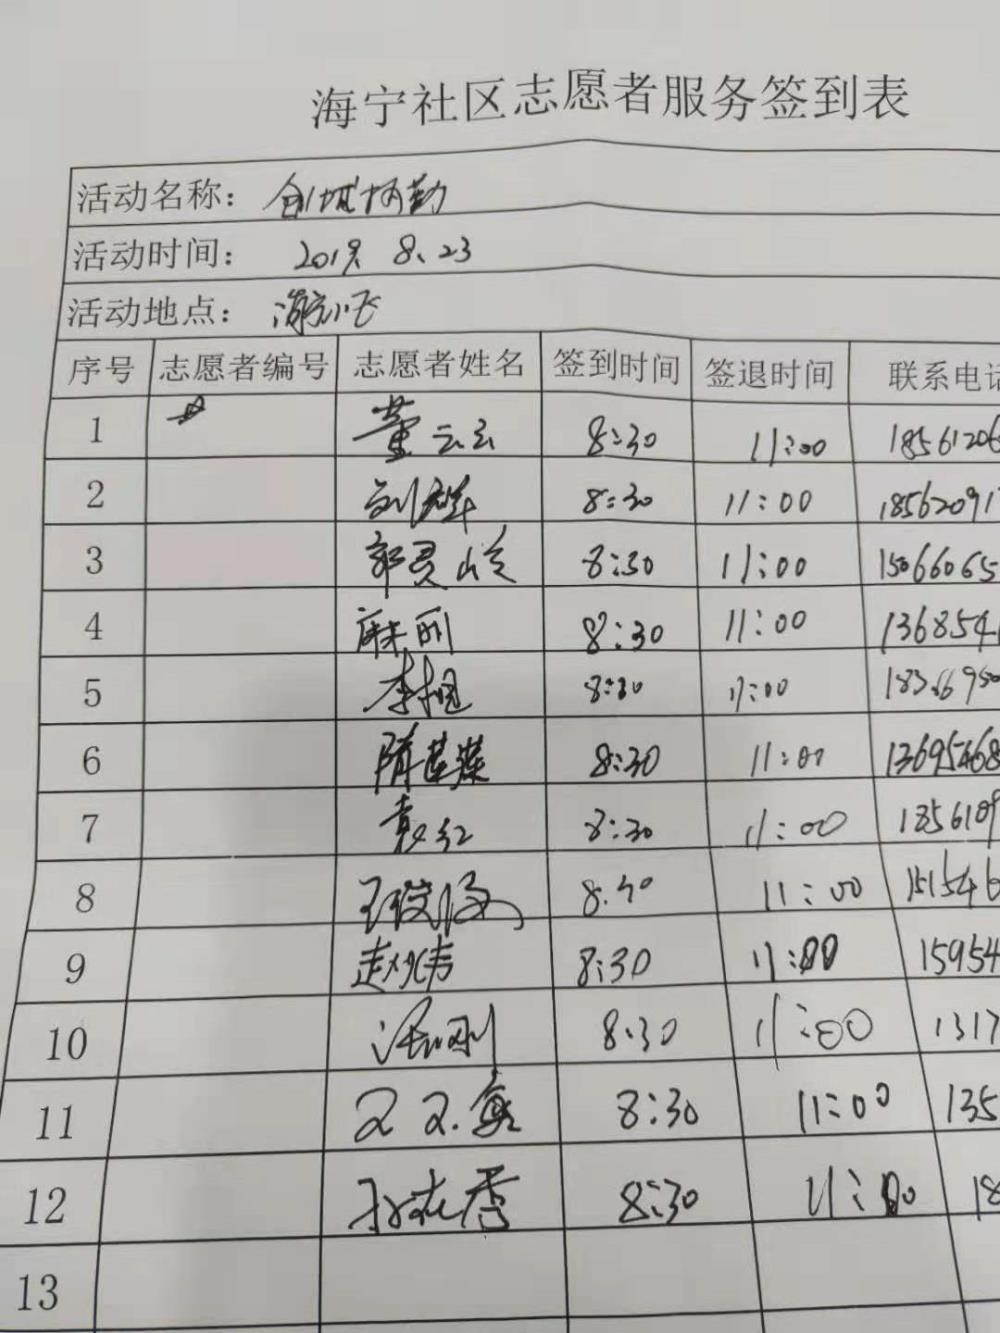 海宁社区志愿者服务签到表
活动名称： 创城执勤
活动时间： 2019 8.23
活动地点： 海宁小区
序号 志愿者编号 志愿者姓名 签到时间 签退时间 联系电话
1 董云云 8:30 11:00 1856120
2 刘 8:30 11:00 18562091
3 郭灵 8:30 11:00 15066065
4 麻丽 8:30 11:00 1368541
5 李旭 8:30 11:00
6 隋莲 8:30 11:00 13695468
7 袁红 8:30 11:00 1856109
8 王俊 11:00 151546
9 赵炜 8:30 11:00 15954
10 刚 8:30 11:00 1317
11 8:30 11:00 135
12 孙花香 8:30 11:00 18
13